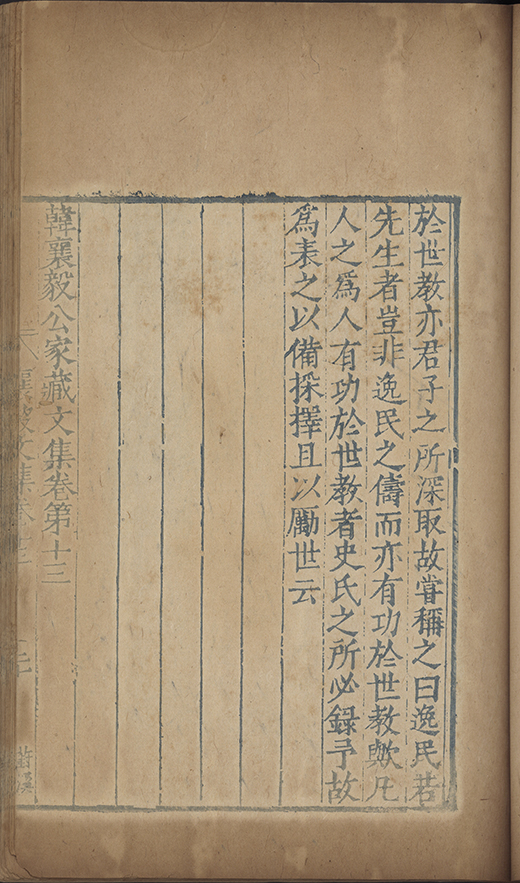 於世教亦君子之所深取故嘗稱之曰逸民若
先生者豈非逸民之儔而亦有功於世教歟凡
人之爲人有功於世教者史氏之所必録予故
爲表之以備採擇且以勵世云
韓襄毅公家藏文集卷第十三
襄毅文集卷十三